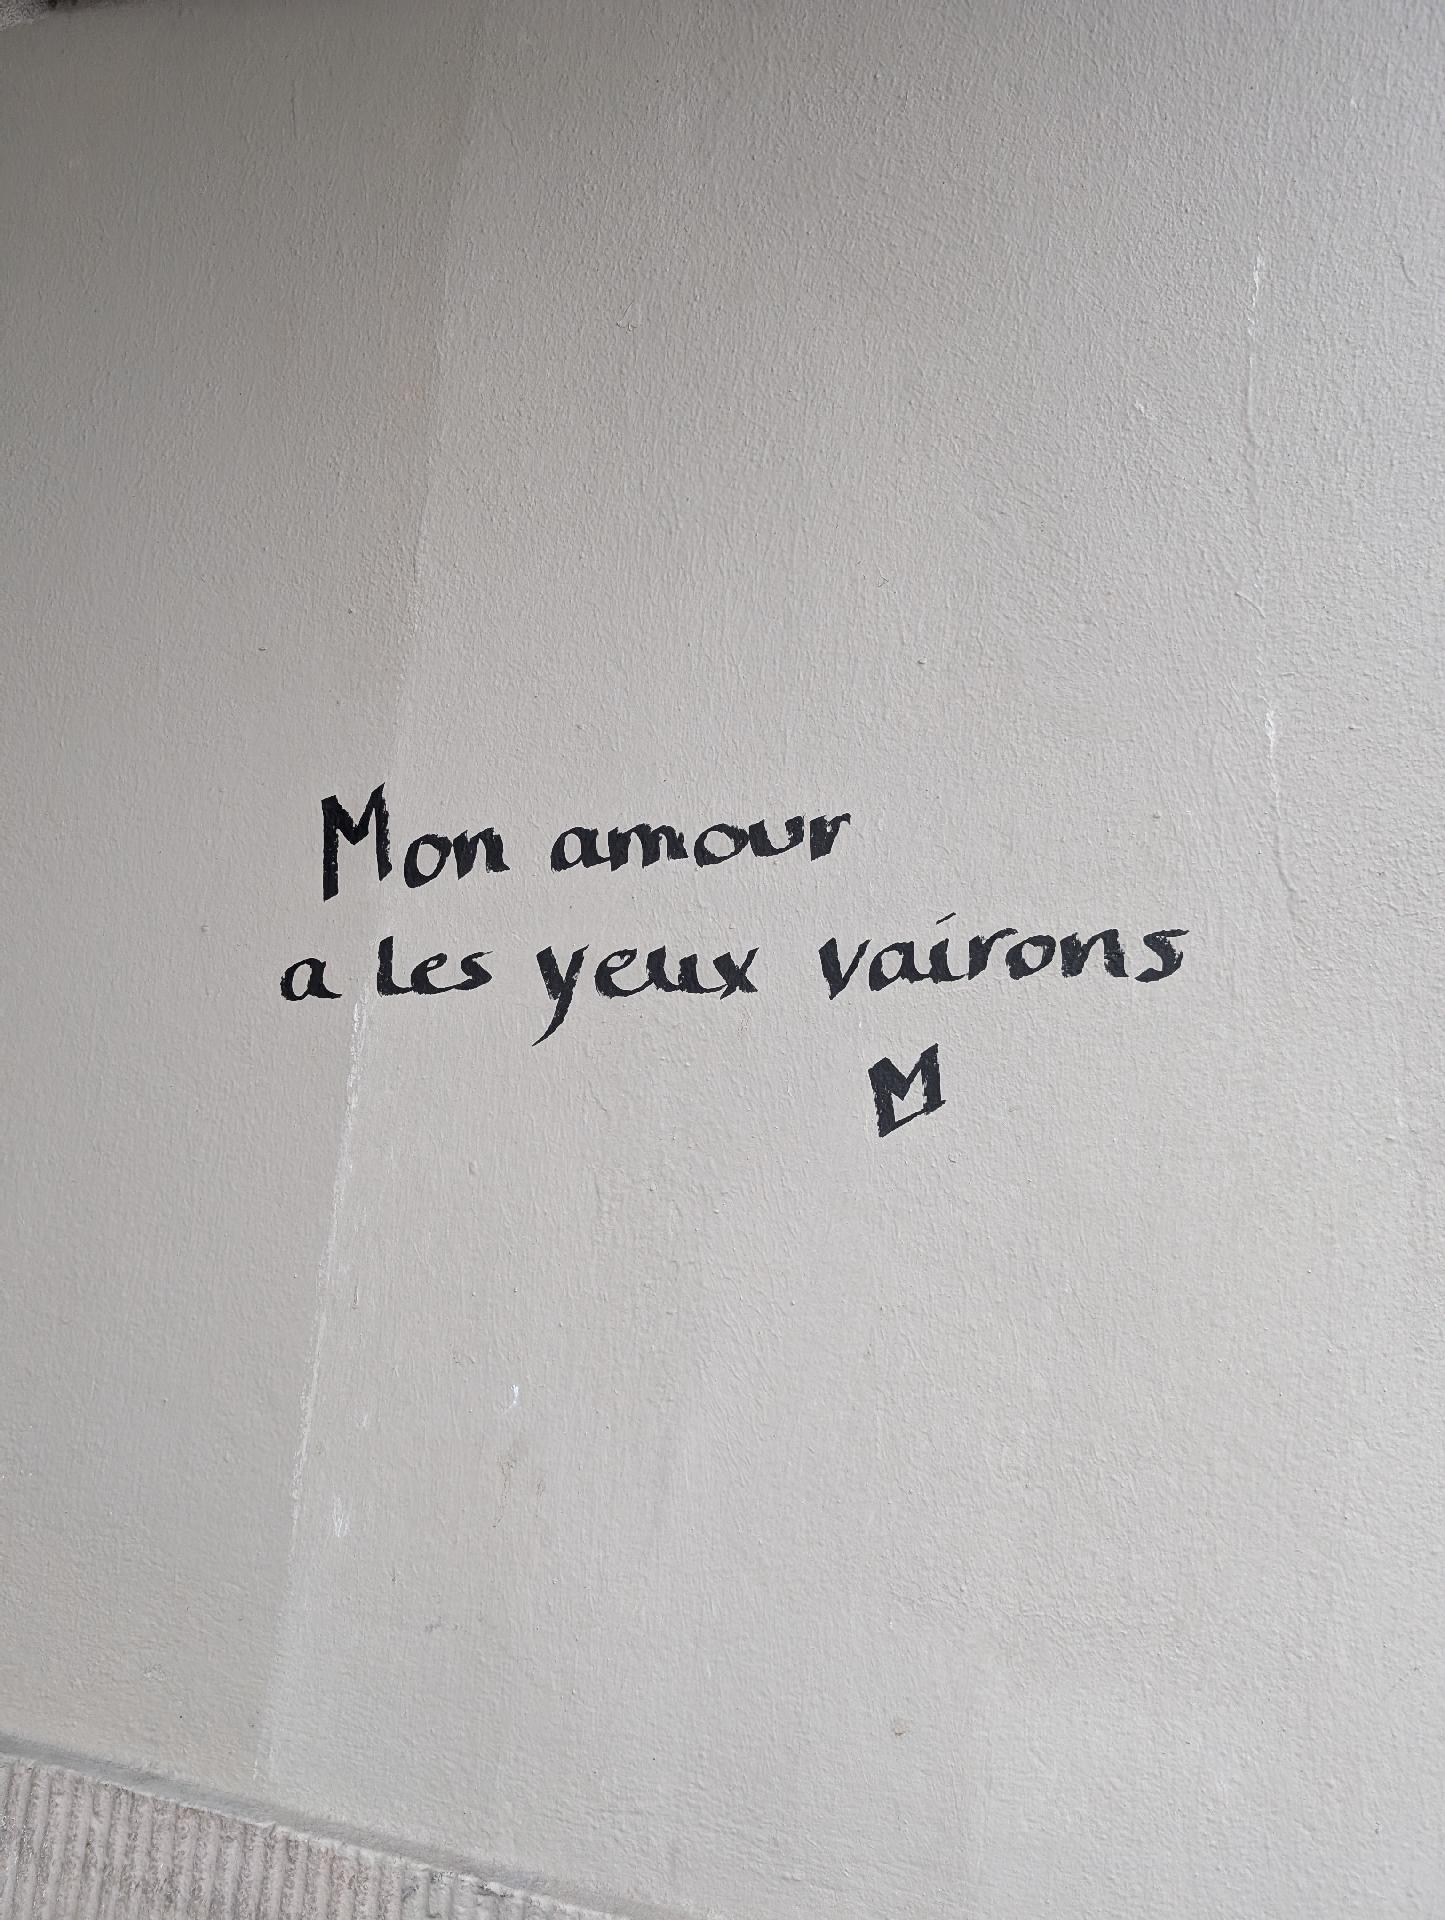 Mon amour
a les yeux vairons
M